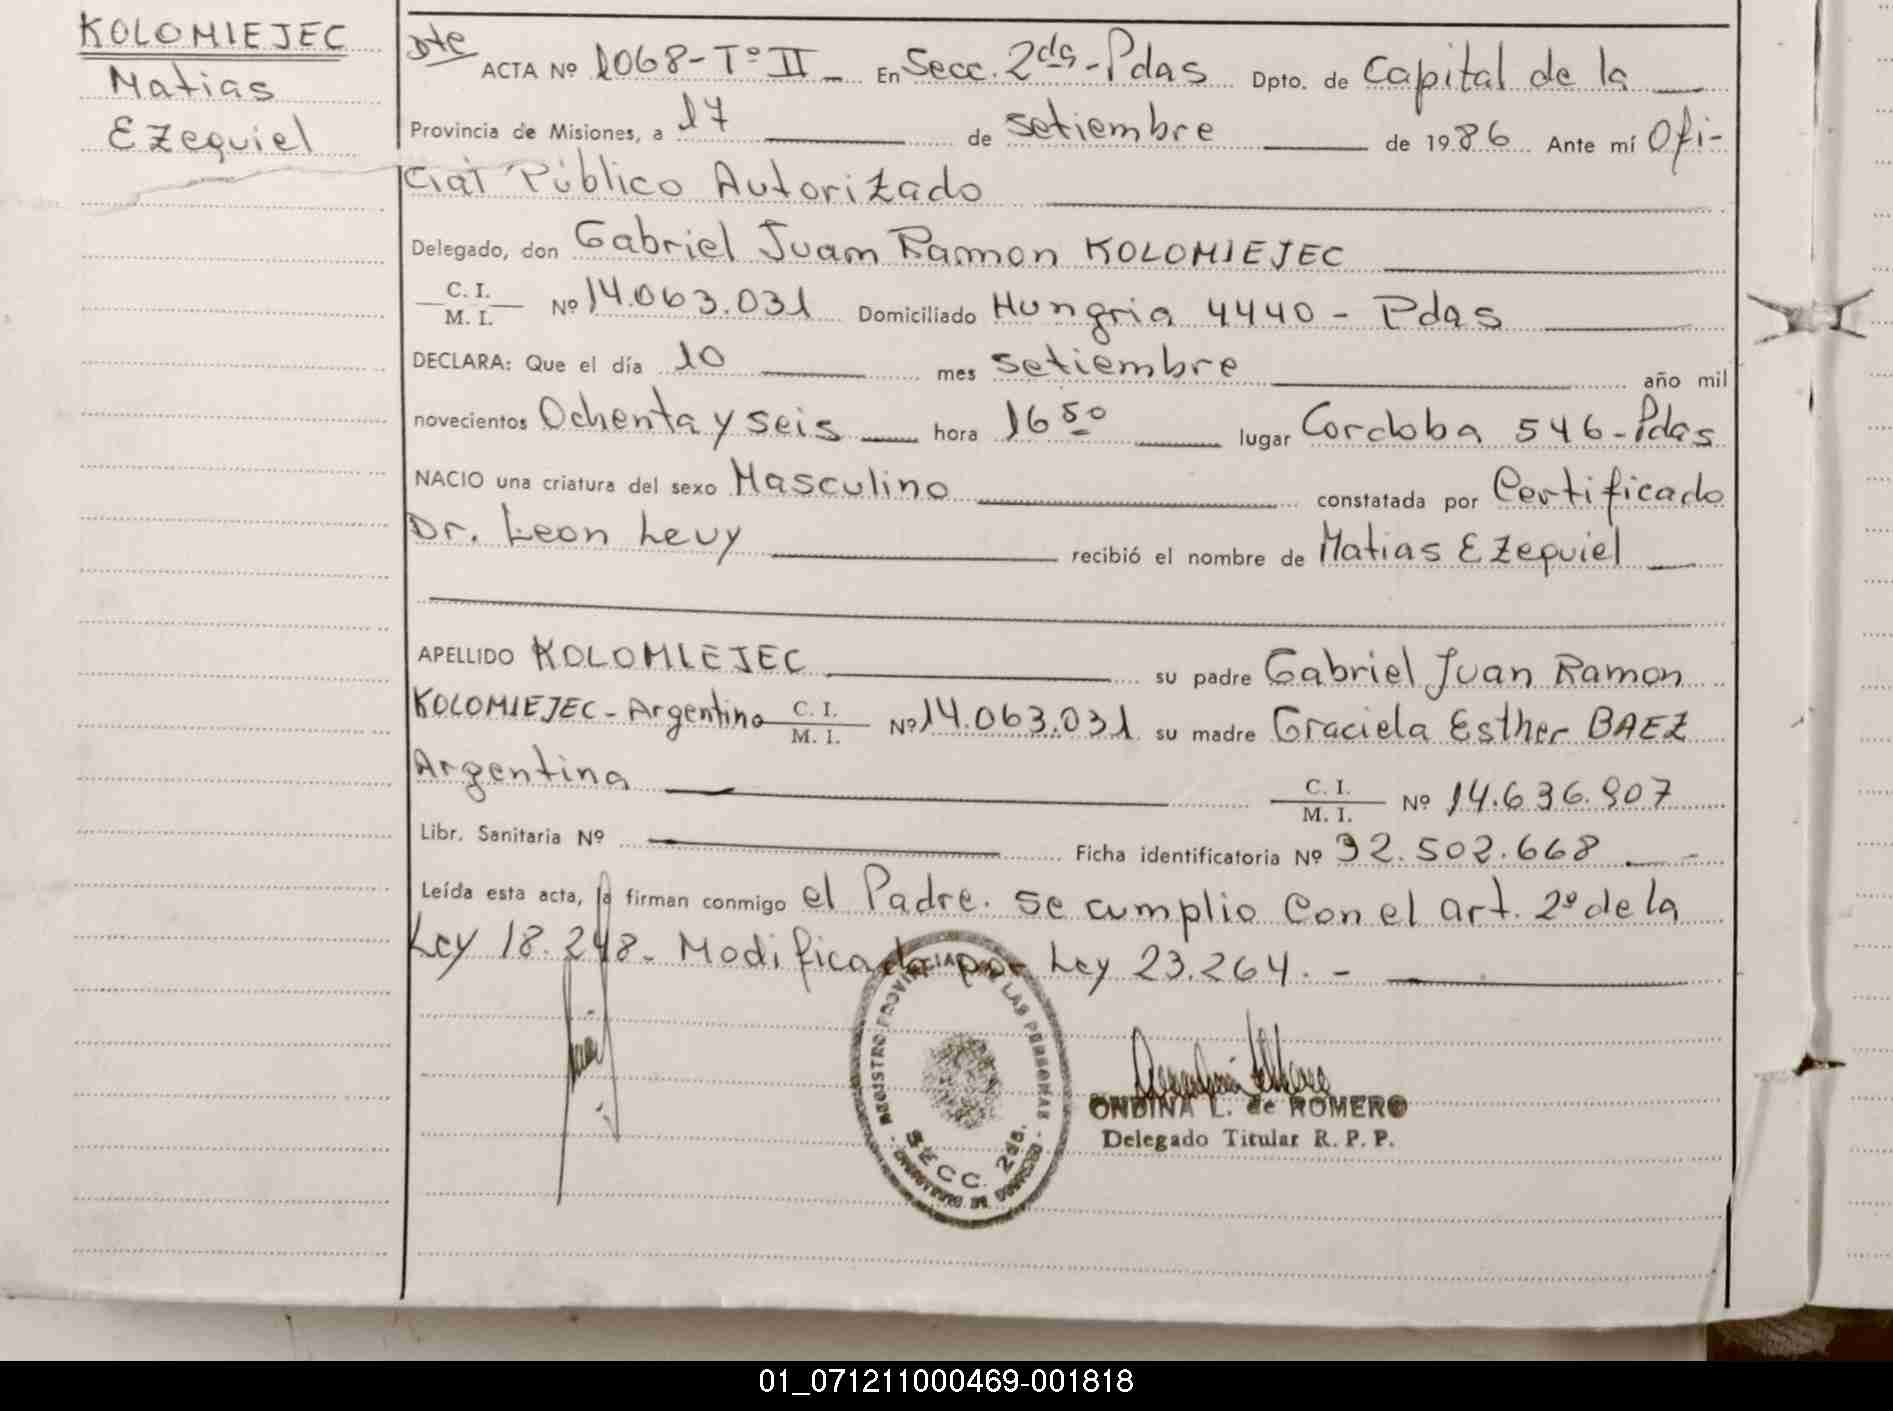 KOLOMIEJEC
Matias
Ezequiel
Dte ACTA Nº 1068-Tº II - En Secc. 2da-Pdas Dpto. de Capital de la
Provincia de Misiones, a 17 de setiembre de 1986 Ante mí Ofi-
cial Público Autorizado
Delegado, don Gabriel Juan Ramon KOLOMIEJEC
C. I. / M. I. Nº 14.063.031 Domiciliado Hungria 4440 - Pdas
DECLARA: Que el día 10 mes setiembre año mil
novecientos Ochenta y seis hora 16 50 lugar Cordoba 546-Pdas
NACIO una criatura del sexo Masculino constatada por Certificado
Dr. Leon Levy recibió el nombre de Matias Ezequiel
APELLIDO KOLOMIEJEC su padre Gabriel Juan Ramon
KOLOMIEJEC - Argentino C. I. / M. I. Nº 14.063.031 su madre Graciela Esther BAEZ
Argentina C. I. / M. I. Nº 14.636.907
Libr. Sanitaria Nº Ficha identificatoria Nº 32.502.668
Leída esta acta, la firman conmigo el Padre. se cumplio Con el art. 2º de la
Ley 18.248- Modificada por Ley 23.264.-
REGISTRO PROVINCIAL DE LAS PERSONAS
SECC. 2da.
ONDINA L. de ROMERO
Delegado Titular R. P. P.
01_071211000469-001818